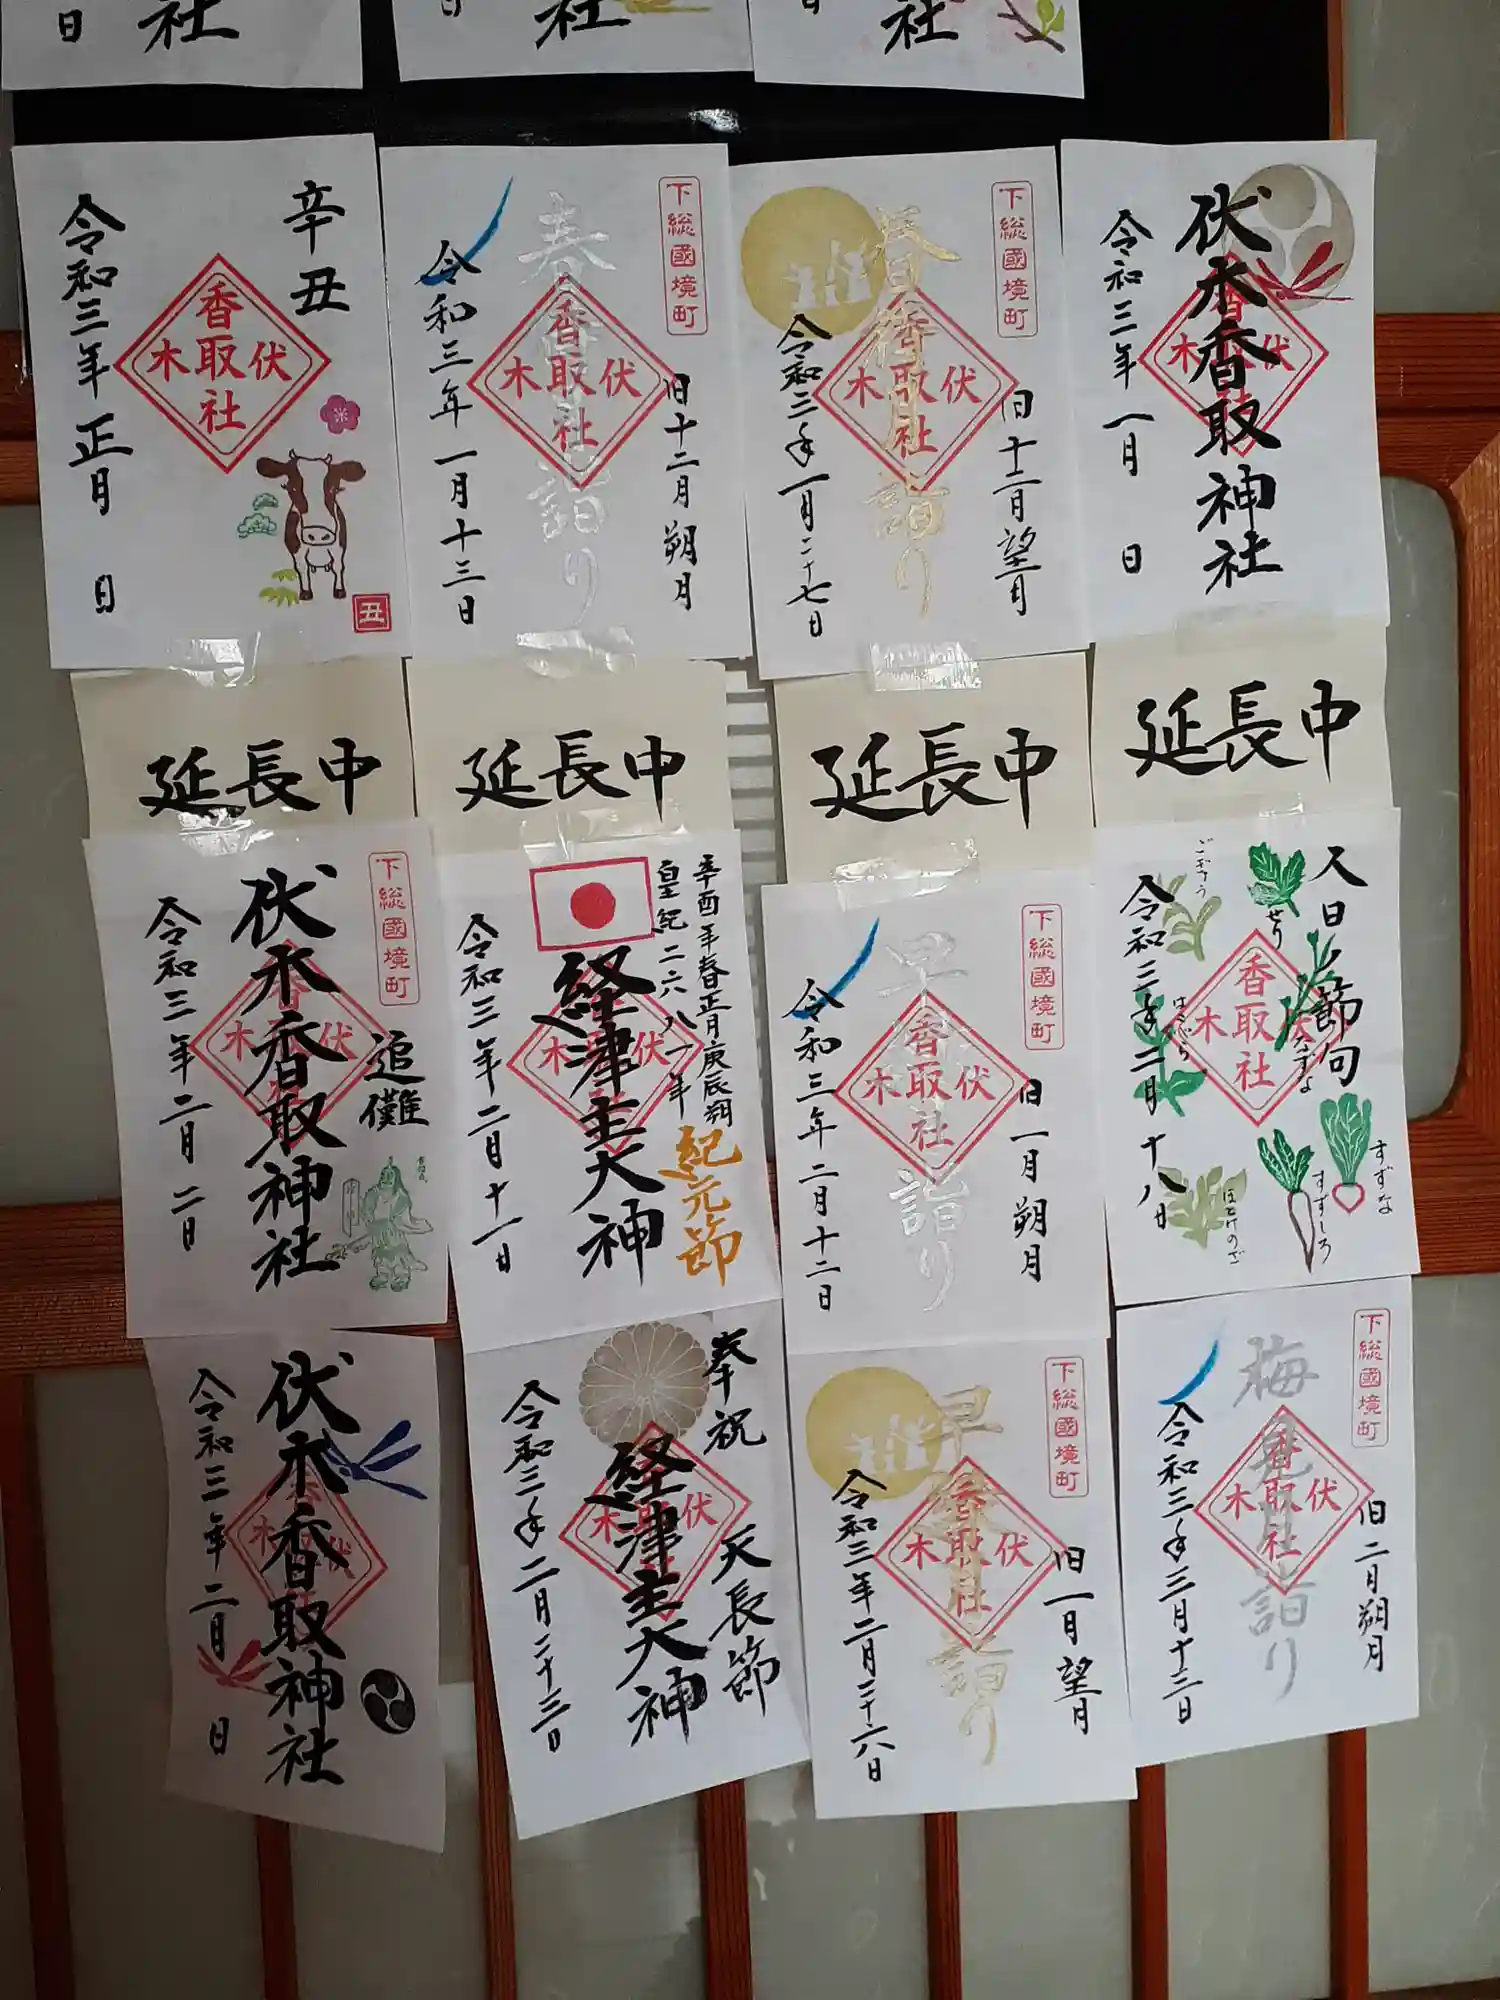 日
社
日
社
日
社
辛丑
香取社
伏木
令和三年正月 日
丑
下総國境町
春
詣り
香取社
伏木
旧十二月朔月
令和三年一月十三日
下総國境町
春
詣り
香取社
伏木
旧十二月望月
令和三年一月二十七日
伏木香取神社
令和三年一月 日
延長中
延長中
延長中
延長中
下総國境町
追儺
伏木香取神社
令和三年二月二日
辛酉年春正月庚辰朔
皇紀二六八一年
紀元節
経津主大神
令和三年二月十一日
下総國境町
早
詣り
香取社
伏木
旧一月朔月
令和三年二月十二日
人日ノ節句
香取社
伏木
ごぎょう
せり
なずな
はこべら
すずな
すずしろ
ほとけのざ
令和三年二月十八日
伏木香取神社
令和三年二月 日
奉祝 天長節
経津主大神
令和三年二月二十三日
下総國境町
早
詣り
香取社
伏木
旧一月望月
令和三年二月二十六日
下総國境町
梅見月詣り
香取社
伏木
旧二月朔月
令和三年三月十三日